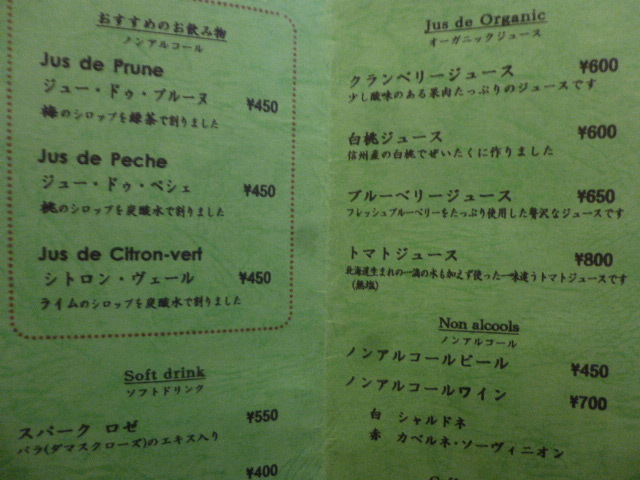 おすすめのお飲み物
ノンアルコール
Jus de Prune
ジュー・ドゥ・プルーヌ ¥450
梅のシロップを緑茶で割りました
Jus de Peche
ジュー・ドゥ・ペシェ ¥450
桃のシロップを炭酸水で割りました
Jus de Citron-vert
シトロン・ヴェール ¥450
ライムのシロップを炭酸水で割りました
Soft drink
ソフトドリンク
スパーク ロゼ ¥550
バラ(ダマスクローズ)のエキス入り
¥400
Jus de Organic
オーガニックジュース
クランベリージュース ¥600
少し酸味のある果肉たっぷりのジュースです
白桃ジュース ¥600
信州産の白桃でぜいたくに作りました
ブルーベリージュース ¥650
フレッシュブルーベリーをたっぷり使用した贅沢なジュースです
トマトジュース ¥800
北海道生まれの一滴の水も加えず使った一味違うトマトジュースです
(無塩)
Non alcools
ノンアルコール
ノンアルコールビール ¥450
ノンアルコールワイン ¥700
白 シャルドネ
赤 カベルネ・ソーヴィニオン